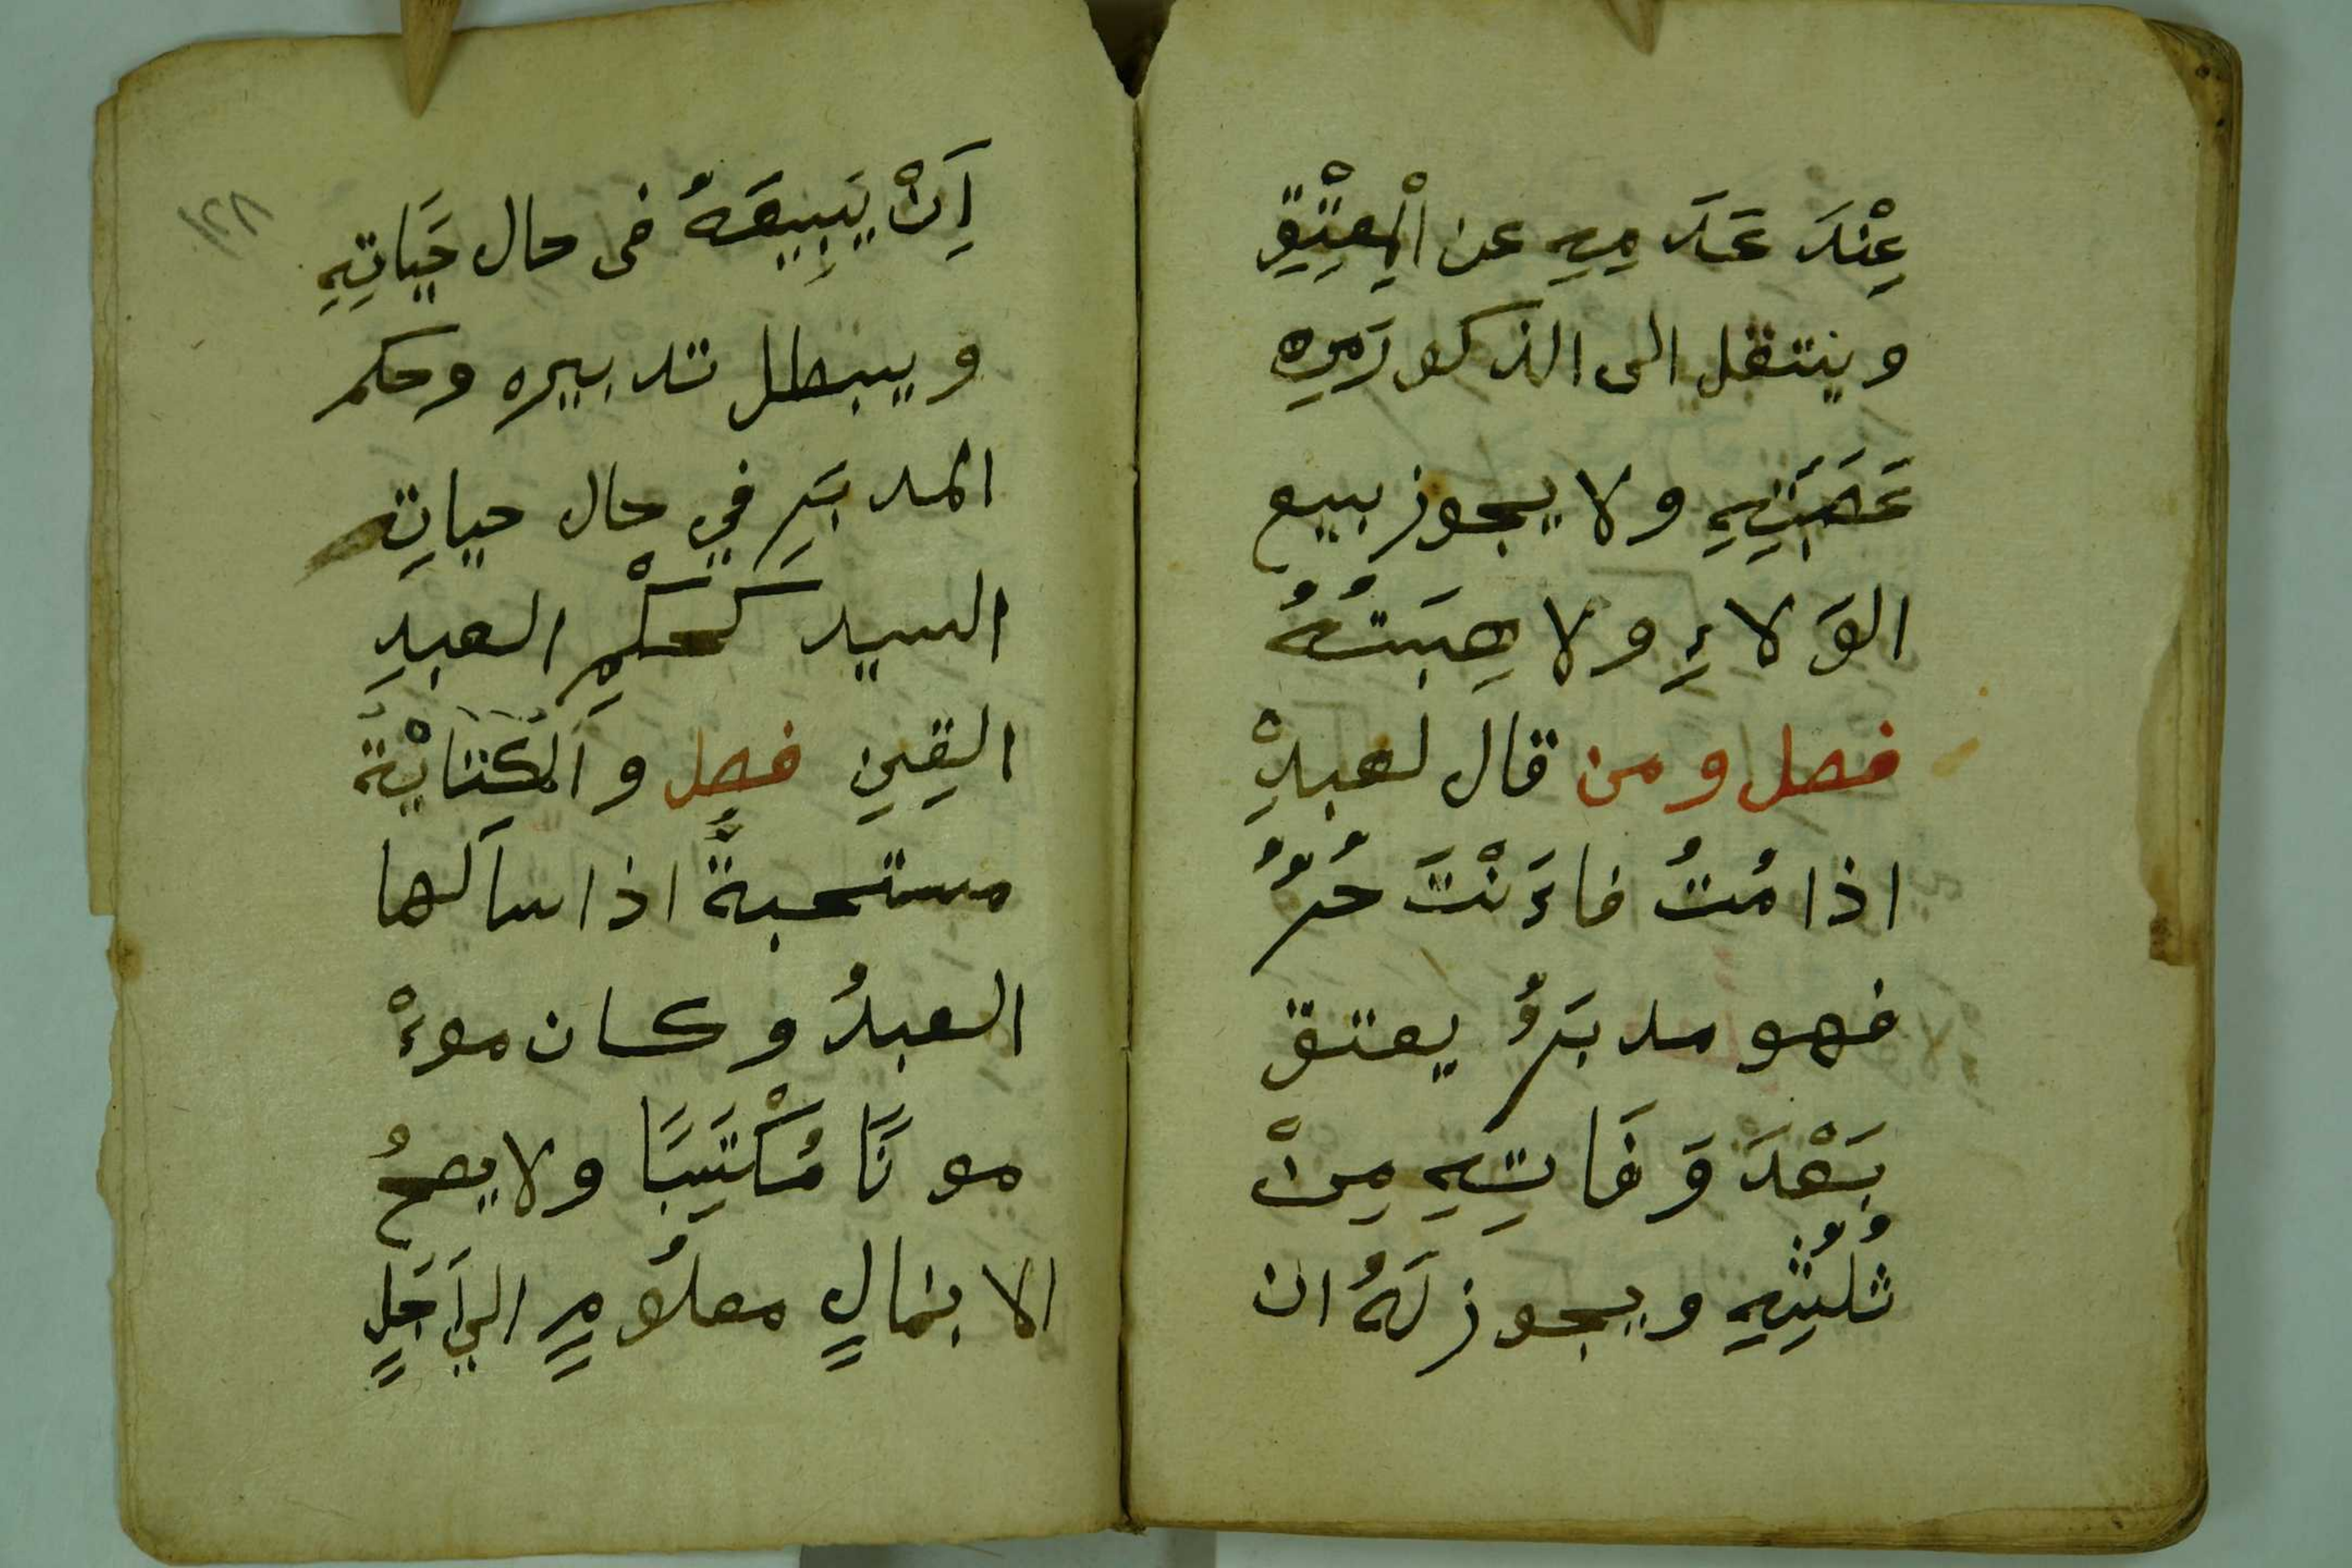 عِنْدَ عَدَمِهِ عن الْمِعْتِقِ
وينتقل الى الذكور مِن
عَصَبَتِهِ ولا يجوز بيع
الوَلاءِ ولا هِبَتُهُ
فصل ومن قال لعبدِهْ
اذا مُتُ فاءَنْتَ حُرٌ
فهو مدبَرٌ يعتق
بَعْدَ وَفَاتِهِ مِنْ
ثُلُثِهِ ويجوز لَهُ ان
١٢٨
اَِنْ يَبِيعَهُ فى حال حَيَاتِهِ
ويبطل تدبيره وحكم
المدبَرِ في حال حياتِه
السيد كَحكْمِ العبدِ
القِنِ فصل والْكِتَابَةُ
مستحبةٌ اذا سأَلها
العبدُ وكان موءْ
مونًا مُكْتَسِبًا ولا يصحُ
الا بمالٍ معلُومٍ الي اَجَلٍ